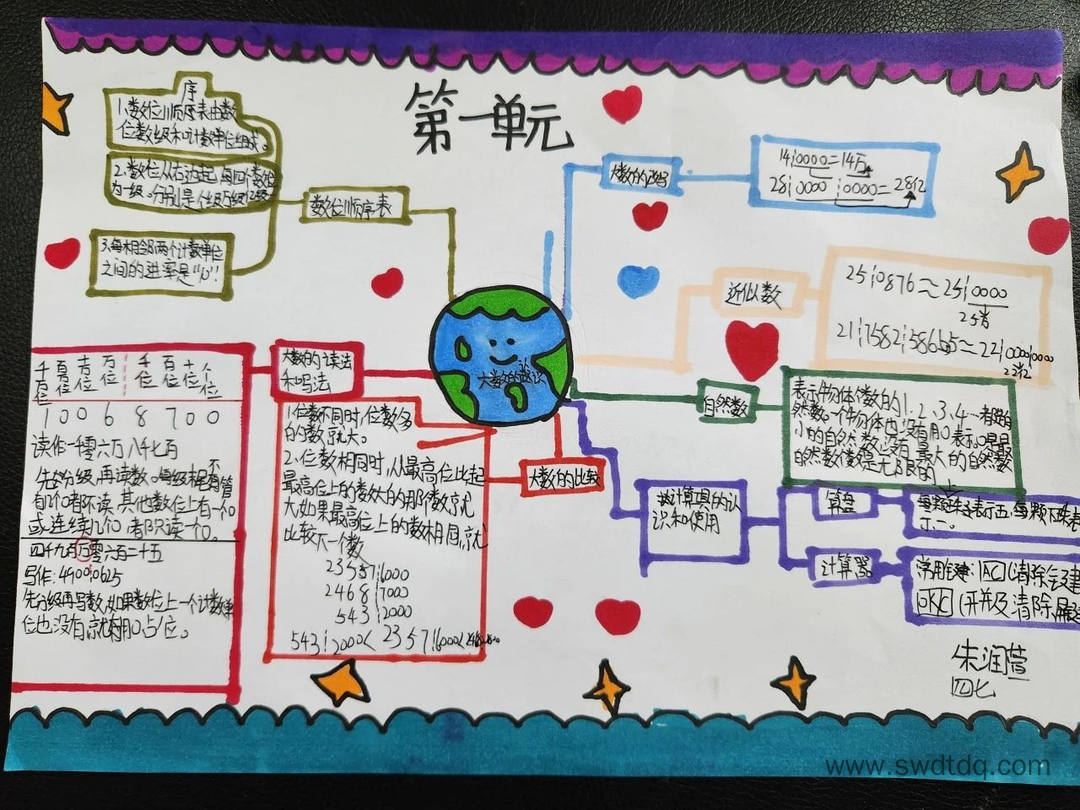 第一单元
序
1.数位顺序表由数
位数级和计数单位组成。
2.数位从右边起,每四个数位
为一级。分别是个级万级亿级
3.每相邻两个计数单位
之间的进率是"10".
数位顺序表
大数的改写
14|0000=14万
28|0000|0000=28亿
近似数
25|0876≈25|0000
25万
21|7582|5865≈22|0000|0000
22亿
大数的认识
自然数
表示物体个数的1、2、3、4…都是自
然数。一个物体也没有用0表示。0是最
小的自然数,没有最大的自然数
自然数个数是无限的
大数的读法
和写法
千 百 十 万 千 百 十 个
万 万 万 位 位 位 位 位
1 0 0 6 8 7 0 0
读作一千零六万八千七百
先分级,再读数。每级末尾不管
有几个0都不读,其他数位上有一个0
或连续几个0,都只读一个0。
四千九百万零六百二十五
写作:49000625
先分级再写数,如果数位上一个计数单
位也没有,就用0占位。
1.位数不同时,位数多
的数就大。
2.位数相同时,从最高位比起
最高位上的数大的那个数就
大,如果最高位上的数相同,就
比较下一个数
2357|6000
2468|7000
543|2000
543|2000<2357|6000<2468|7000
大数的比较
计算工具的认
识和使用
算盘
每颗上珠表示五,每颗下珠表
示一。
计算器
常用键:AC(清除键
ON/C(开并及清除屏
朱润萱
四七
www.swdtdq.com